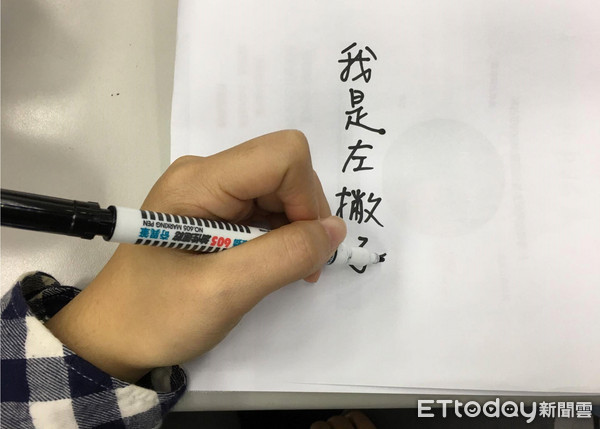 我是左撇
605
NO.605 MARKING PEN
ETtoday新聞雲